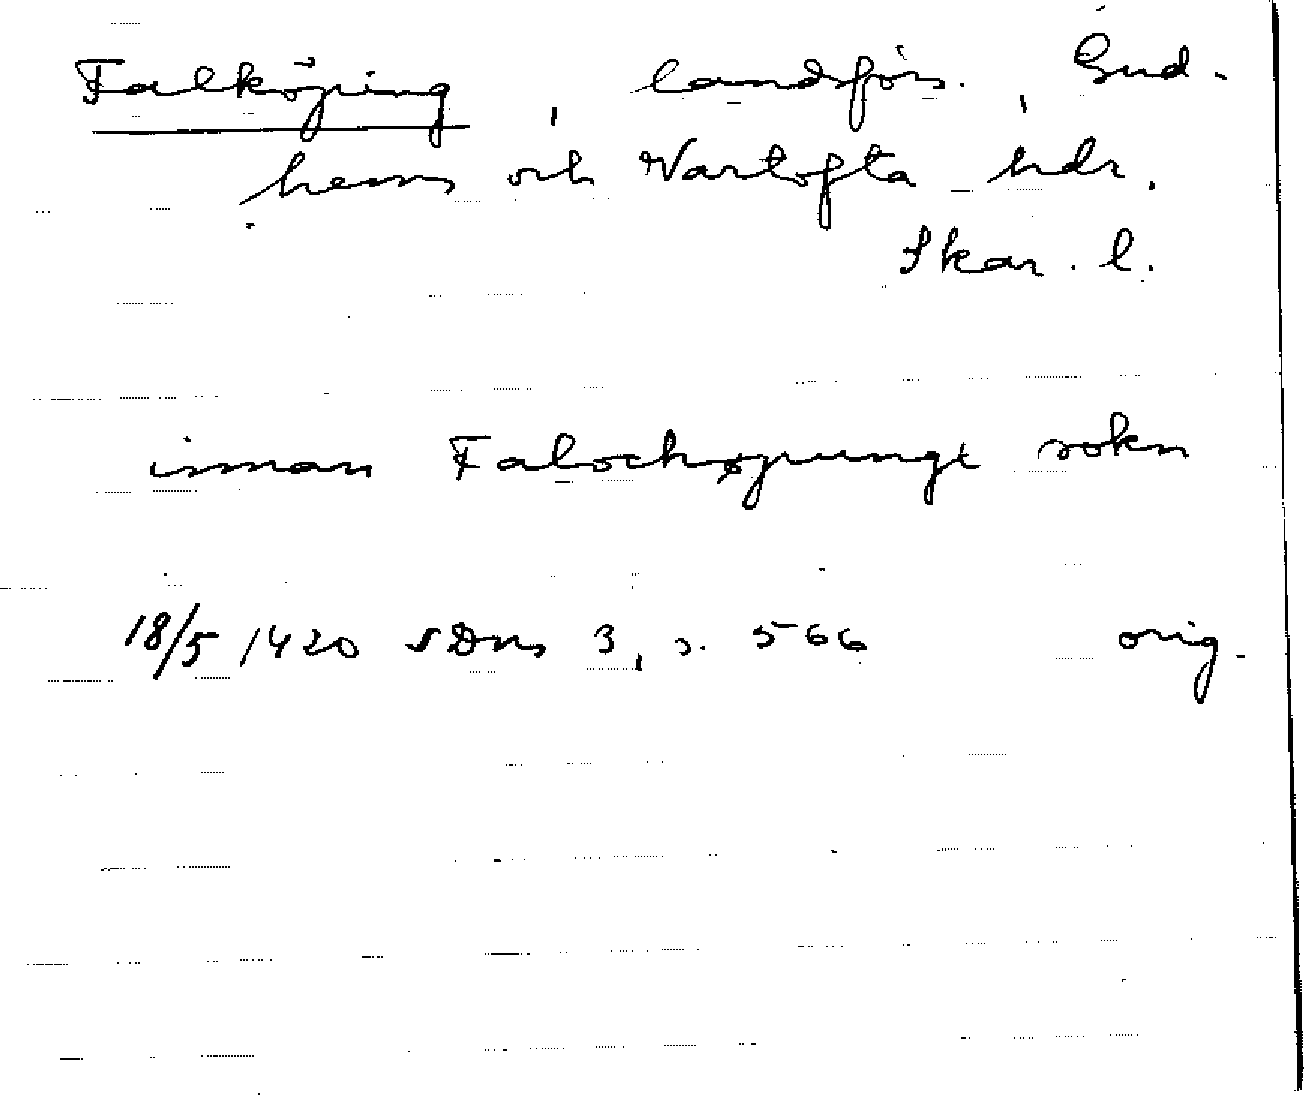 Falköping, landsförs., Gud-
hems och Vartofta hdr.
Skar. l.
innan Falochøpungx sokn
18/5 1420 SDns 3, s. 566 orig.